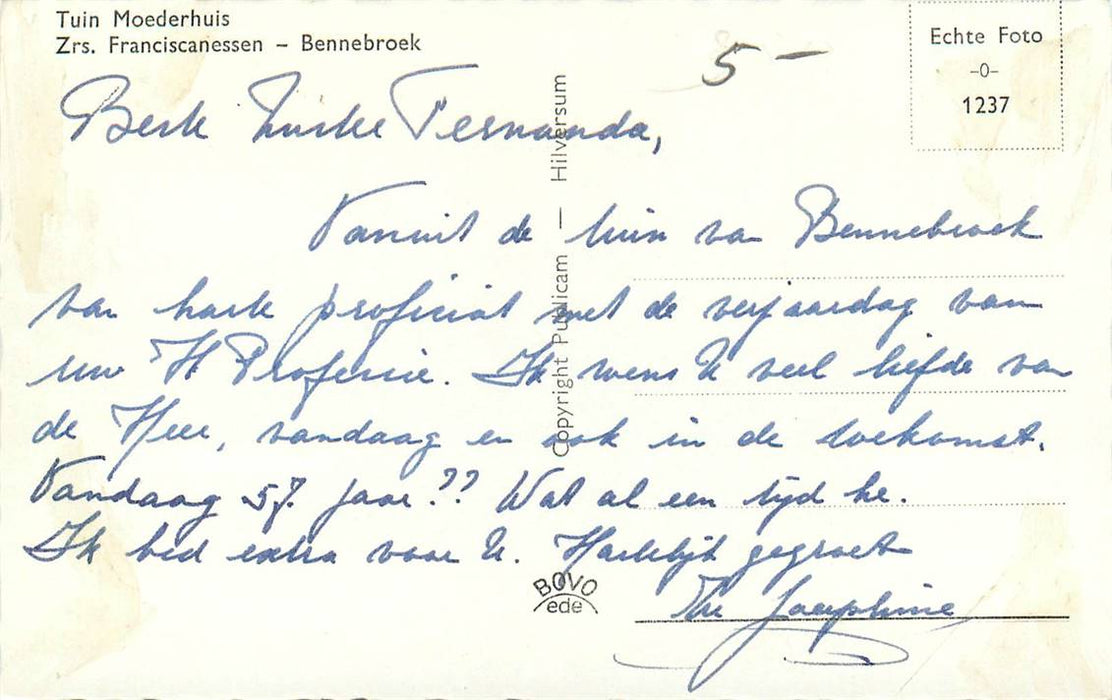 Tuin Moederhuis
Zrs. Franciscanessen – Bennebroek
5 –
Echte Foto
–0–
1237
Beste Zuster Fernanda,
Vanuit de tuin van Bennebroek
van harte proficiat met de verjaardag van
uw H Professie. Ik wens U veel liefde van
de Heer, vandaag en ook in de toekomst.
Vandaag 57. jaar?? Wat al een tijd he.
Ik bid extra voor U. Hartelijk gegroet
Zr Josephine
Copyright Publicam — Hilversum
BOVO
ede